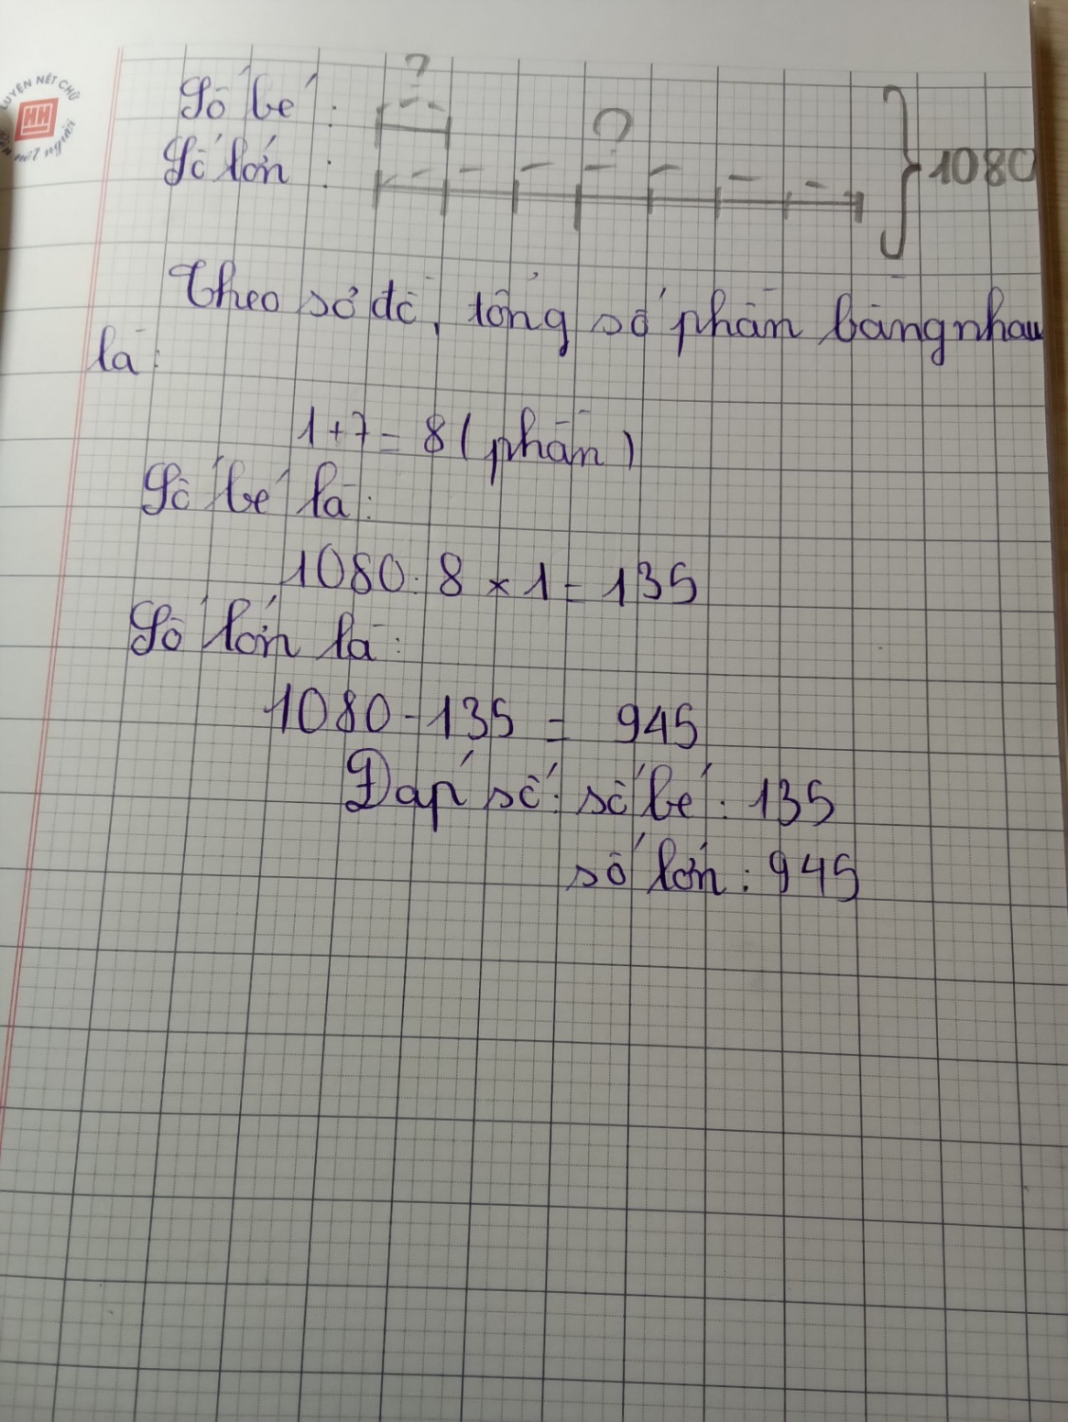 LUYỆN NÉT CHỮ
HH
nết người
?
Số bé :
?
Số lớn :
1080
Theo sơ đồ, tổng số phần bằng nhau
là:
1+7= 8 ( phần )
Số bé là:
1080: 8 × 1 = 135
Số lớn là:
1080-135 = 945
Đáp số: số bé: 135
số lớn: 945